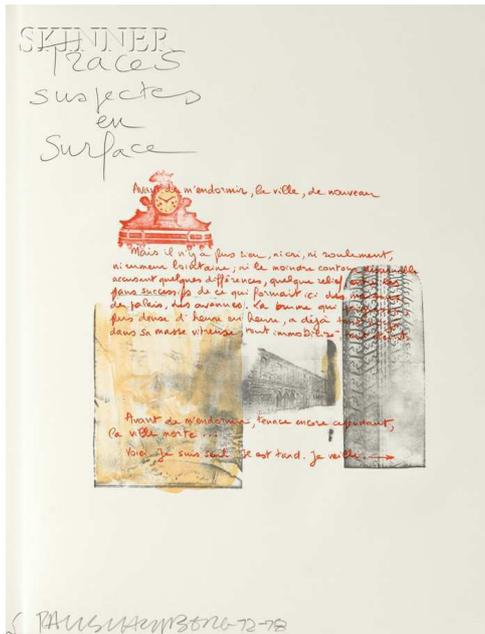 SKINNER
Traces
suspectes
en
surface
Avant de m'endormir, la ville, de nouveau
Mais il n'y a plus rien, ni cri, ni roulement,
ni rumeur lointaine; ni le moindre contour discernable
accusant quelques différences, quelque relief, entre les
plans successifs de ce qui formait ici des maisons,
des palais, des avenues. La brume qui
plus dense d'heure en heure, a déjà
dans sa masse vitreuse, tout immobilisé
Avant de m'endormir, tenace encore cependant,
la ville morte...
Voici. Je suis seul. Il est tard. Je veille. →
RAUSCHENBERG 72-78